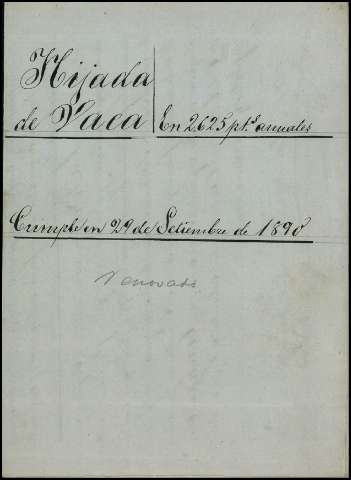 Hijada
de Vaca
En 2.625 pt.s anuales
Cumple en 29 de Setiembre de 1890
Renovado